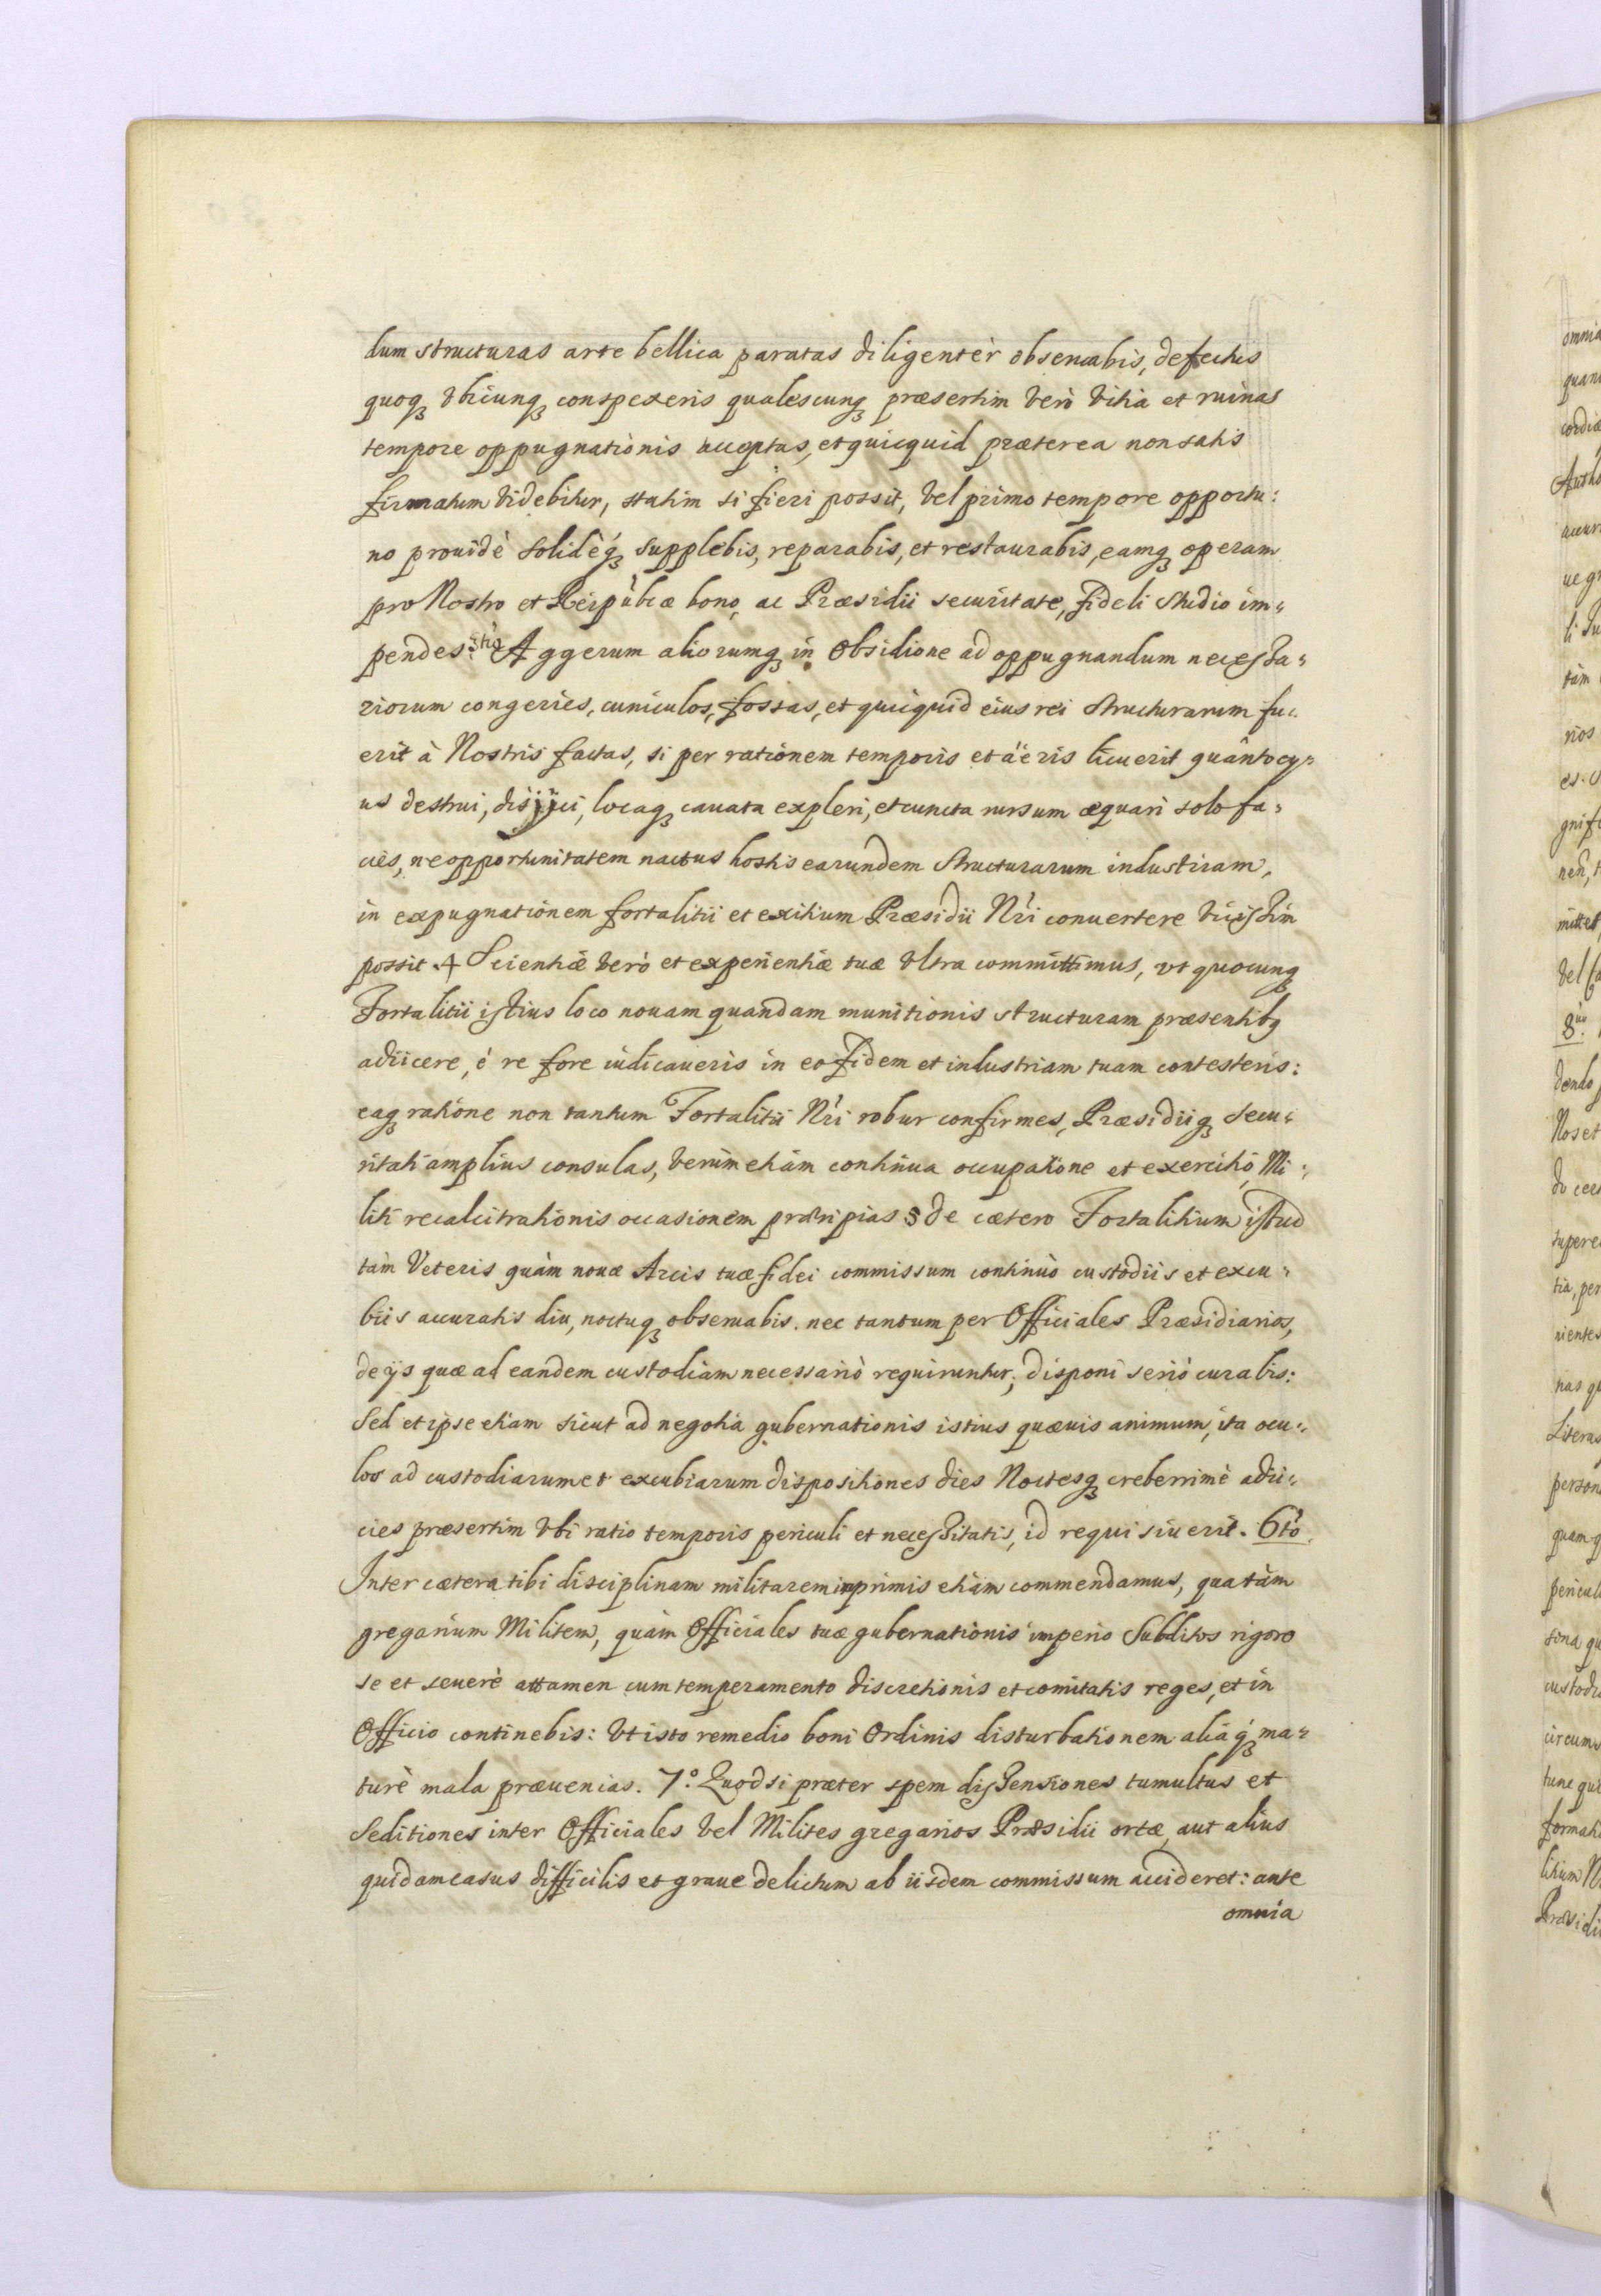 dum structuras arte bellica paratas diligentèr obseruabis, defectus
quoq₃ vbicunq₃ conspexeris qualescunq₃ præsertim verò vitia et ruinas
tempore oppugnationis acceptas, et quicquid præterea non satis
firmatum videbitur, statim si fieri possit, vel primo tempore opportu:
no prouidè solidèq́₃ supplebis, reparabis, et restaurabis, eamq₃ operam
pro Nostro et Reipùbcæ bono, ac Præsidii securitate, fideli studio im„
pendes. 3tio Aggerum aliorumq₃ in obsidione ad oppugnandum necessa„
riorum congeries, cuniculos, fossas, et quicquid eius rei structurarum fu„
erit à Nostris factas, si per rationem temporis et äeris licuerit quântocy„
us destrui, disijci, locaq₃ cauata expleri, et cuncta rursum æquari solo fa„
cies, ne opportunitatem nactus hostis earundem structurarum industriam,
in expugnationem fortalitii et exitium Præsidii Nri conuertere vicissim
possit. 4 Scientiæ verò et experientiæ tuæ vltra committimus, vt quocunq₃
Fortalitii istius loco nouam quandam munitionis structuram præsentibq₃
adiicere, è re fore iudicaueris in eo fidem et industriam tuam contesteris:
eaq₃ ratione non tantum Fortalitii Nri robur confirmes, Præsidiiq₃ secu„
ritati amplius consulas, verùm etiàm continua occupatione et exercitio Mi„
liti recalcitrationis occasionem præripias 5 de cætero Fortalitium istud
tàm Veteris quàm nouæ Arcis tuæ fidei commissum continuò custodiis et excu„
biis accuratis diu, noctuq₃ obseruabis. nec tantum per Officiales Præsidiarios,
de ijs quæ ad eandem custodiam necessariò requiruntur, disponi seriò curabis:
Sed et ipse etiam sicut ad negotia gubernationis istius quæuis animum, ita ocu„
los ad custodiarum et excubiarum dispositiones dies Noctesq₃ creberrimè adii„
cies præsertim vbi ratio temporis periculi et necessitatis, id requisiuerit. 6tò.
Inter cætera tibi disciplinam militarem inprimis etiàm commendamus, qua tàm
gregarium Militem, quàm Officiales tuæ gubernationis imperio subditos rigoro
se et seuerè attamen cum temperamento discretionis et comitatis reges, et in
Officio continebis: vt isto remedio boni Ordinis disturbationem aliaq́₃ ma„
turè mala præuenias. 7.º Quodsi præter spem dissensiones tumultus et
Seditiones inter Officiales vel Milites gregarios Præsidii ortæ, aut alius
quidam casus difficilis et graue delictum ab iisdem commissum accideret: ante
omnia